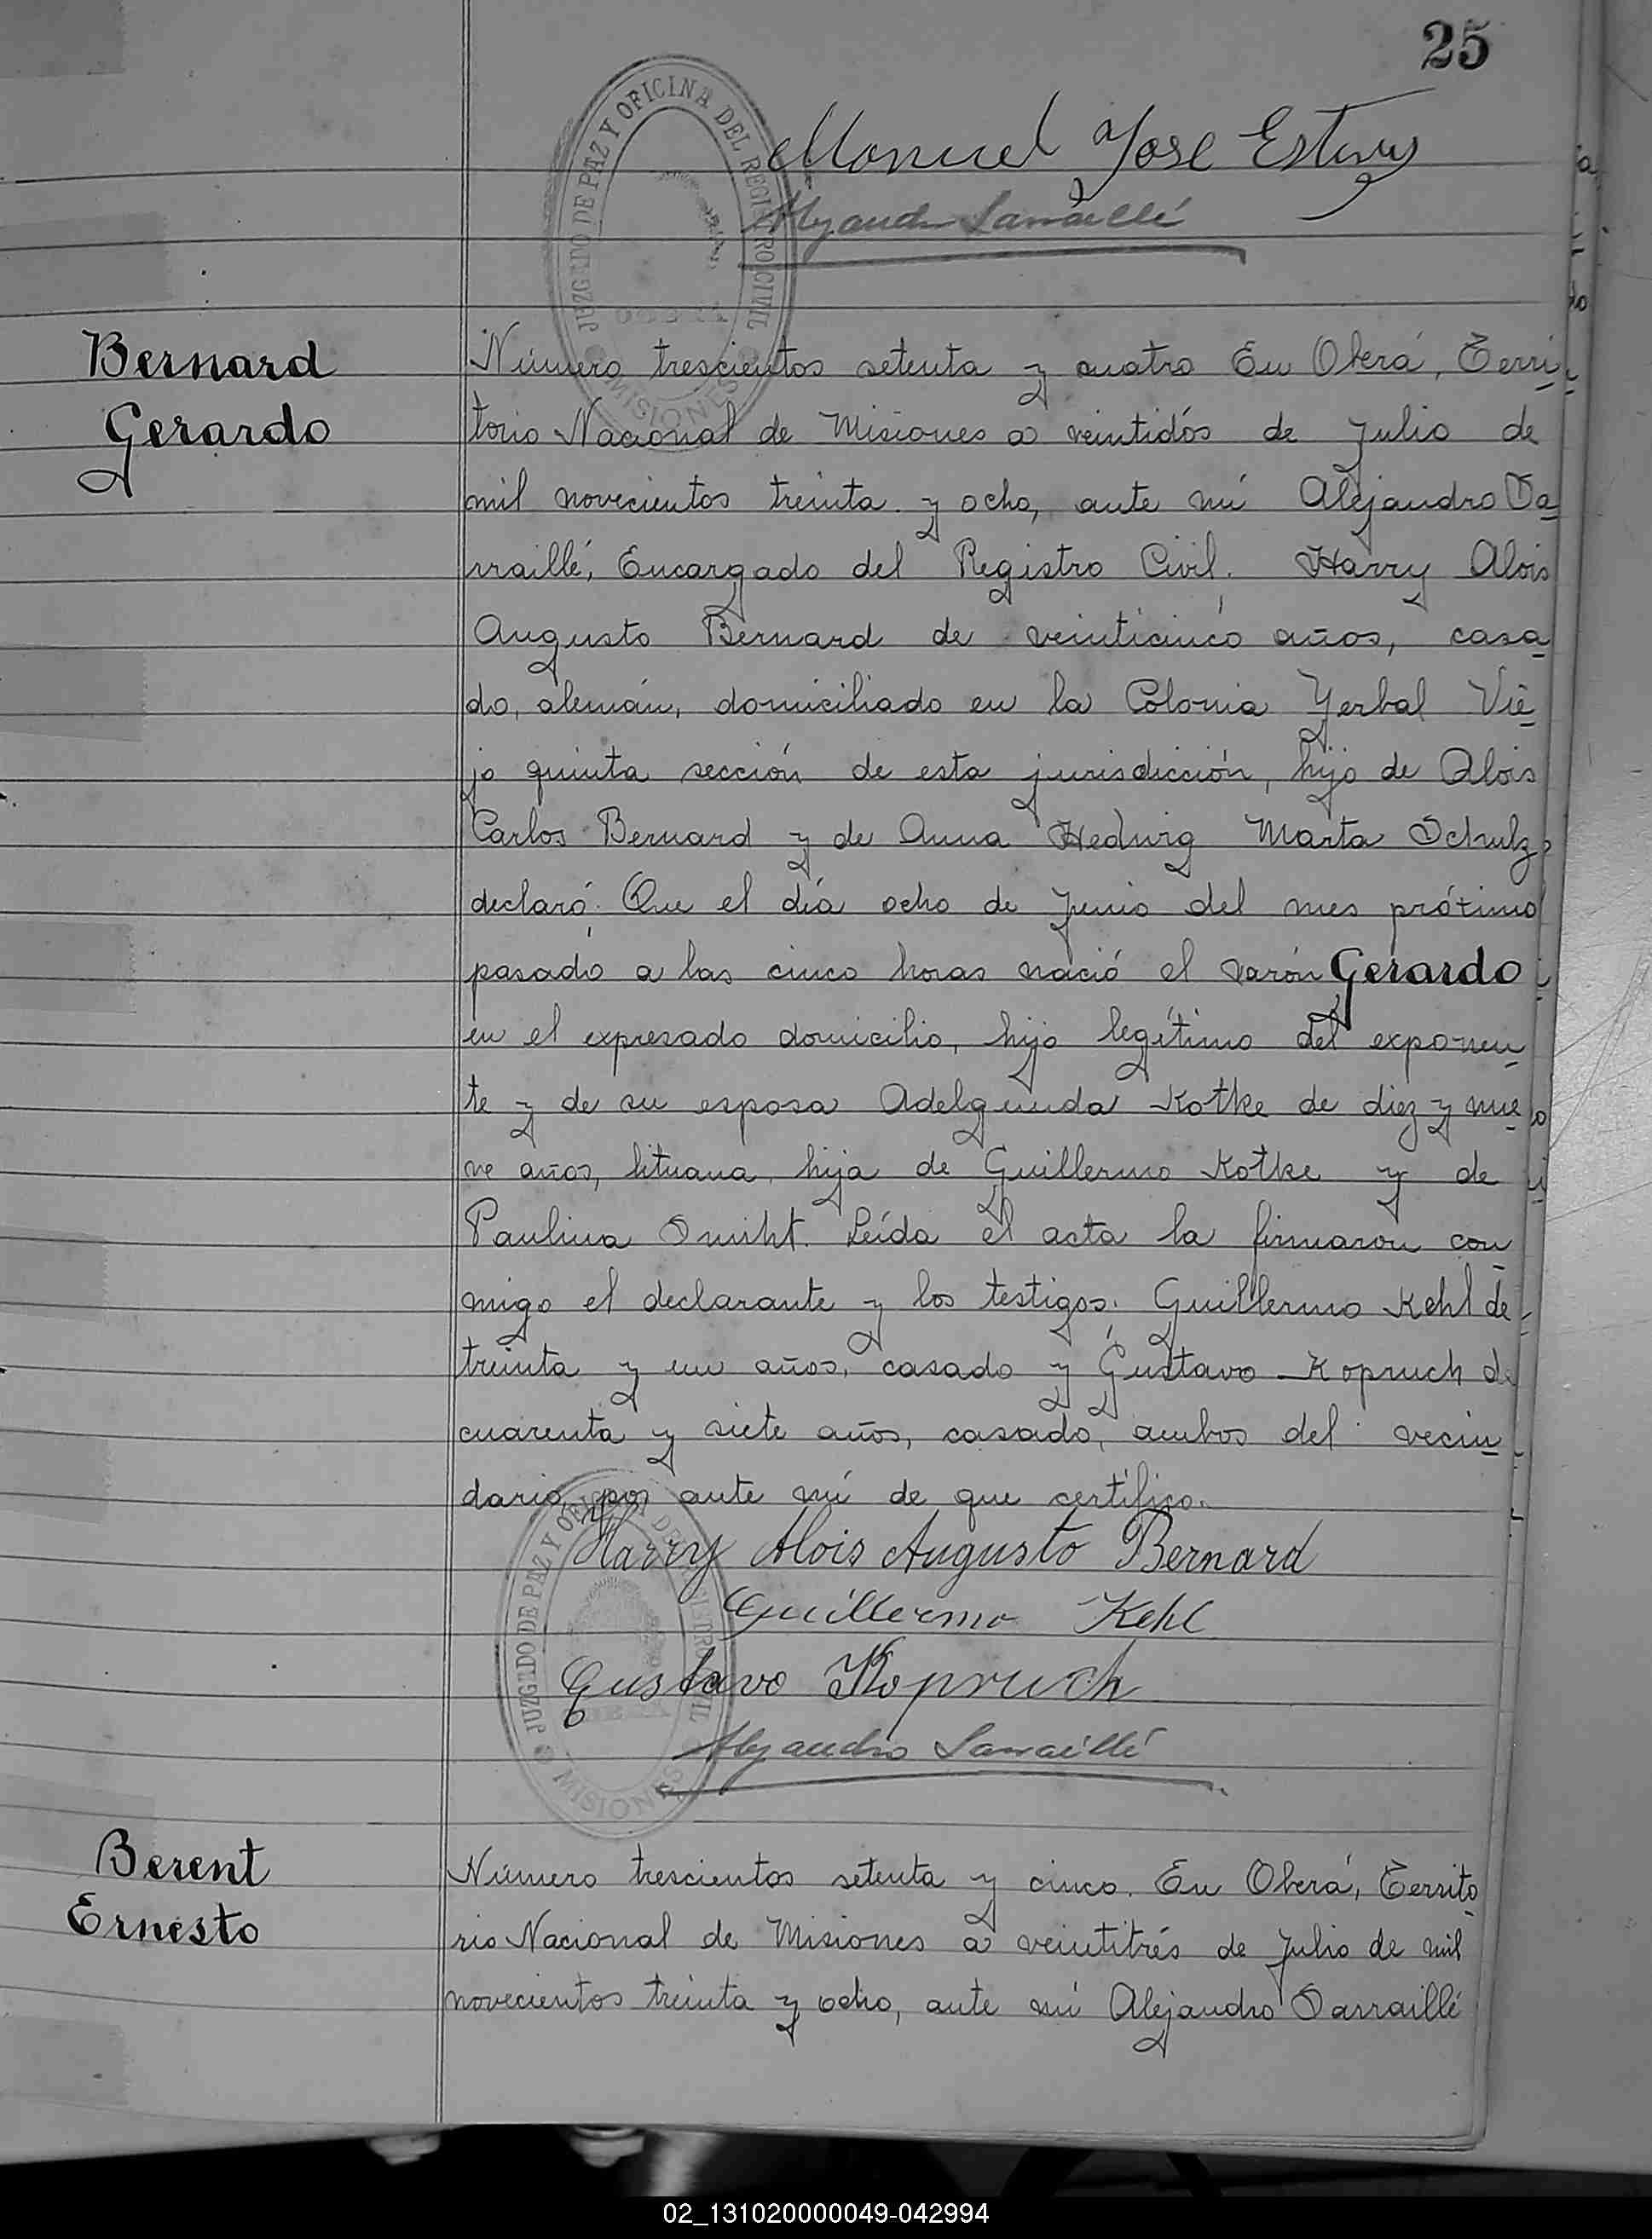 25
JUZGADO DE PAZ Y OFICINA DEL REGISTRO CIVIL
MISIONES
Manuel José
Alejandro Sarraillé
Bernard
Gerardo
Número trescientos setenta y cuatro En Oberá, Terri-
torio Nacional de Misiones a veintidós de Julio de
mil novecientos treinta y ocho, ante mí Alejandro Sa-
rraillé, Encargado del Registro Civil. Harry Alois
Augusto Bernard de veinticinco años, casa-
do, alemán, domiciliado en la Colonia Yerbal Vie-
jo quinta sección de esta jurisdicción, hijo de Alois
Carlos Bernard y de Anna Hedwig Marta Schulz,
declaró: Que el día ocho de Junio del mes próximo
pasado a las cinco horas nació el varón Gerardo
en el expresado domicilio, hijo legítimo del exponen-
te y de su esposa Adelgunda Kotke de diez y nue-
ve años, lituana, hija de Guillermo Kotke y de
Paulina Smiht. Leída el acta la firmaron con-
migo el declarante y los testigos: Guillermo Kehl de
treinta y un años, casado y Gustavo Kopruch de
cuarenta y siete años, casado, ambos del vecin-
dario, por ante mí de que certifico.
Harry Alois Augusto Bernard
Guillermo Kehl
Gustavo Kopruch
Alejandro Sarraillé
JUZGADO DE PAZ Y OFICINA DEL REGISTRO CIVIL
MISIONES
Berent
Ernesto
Número trescientos setenta y cinco. En Oberá, Territo-
rio Nacional de Misiones a veintitrés de Julio de mil
novecientos treinta y ocho, ante mí Alejandro Sarraillé
02_131020000049-042994